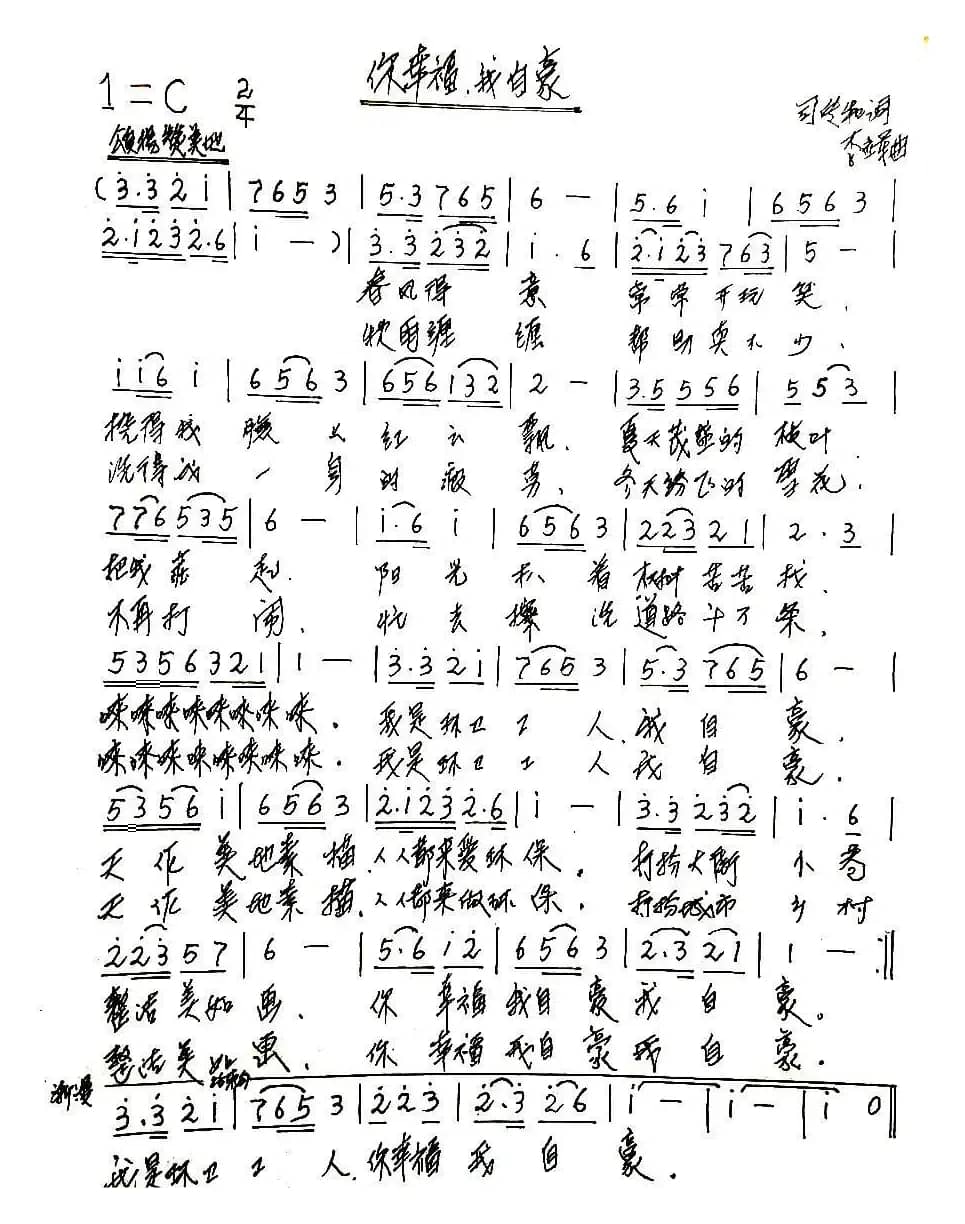 你幸福,我自豪
1=C 2/4
颂扬赞美地
司 词
李 曲
(3.3 2 1 | 7 6 5 3 | 5.3 7 6 5 | 6 — | 5.6 1 | 6 5 6 3 |
2.1 2 3 2.6 | 1 — ) | 3.3 2 3 2 | 1 . 6 | 2.1 2 3 7 6 3 | 5 — |
春风得 意 常常开玩笑,
秋雨缠 缠 帮 不少,
1 1 6 1 | 6 5 6 3 | 6 5 6 1 3 2 | 2 — | 3.5 5 5 6 | 5 5 3 |
搅得我 上 红云 飘. 夏天茂盛的 枝叶.
洗得我 一 身 的 . 冬天纷飞的 雪花.
7 7 6 5 3 5 | 6 — | 1.6 1 | 6 5 6 3 | 2 2 3 2 1 | 2 . 3 |
把我 起. 阳光 着 树 苦苦找,
不再打 闹. 忙去擦 洗 道路 千万条,
5 3 5 6 3 2 1 | 1 — | 3.3 2 1 | 7 6 5 3 | 5.3 7 6 5 | 6 — |
唻唻唻唻唻唻唻唻. 我是环卫工 人,我 自 豪,
唻唻唻唻唻唻唻唻. 我是环卫工 人 我 自 豪.
5 3 5 6 1 | 6 5 6 3 | 2.1 2 3 2.6 | 1 — | 3.3 2 3 2 | 1 . 6 |
天 作 美 地素 描,人人都来爱环 保. 打扮大街 小巷
天 作 美 地素 描,人人都来做环 保. 打扮城市 乡村
2 2 3 5 7 | 6 — | 5.6 1 2 | 6 5 6 3 | 2.3 2 1 | 1 — :‖
整洁美如 画. 你 幸福 我自 豪 我 自 豪。
整洁美如 画. 你 幸福 我自 豪 我 自 豪.
渐慢 结束句
3.3 2 1 | 7 6 5 3 | 2 2 3 | 2.3 2 6 | 1 — | 1 — | 1 0 ‖
我是环卫 工 人,你幸福 我 自 豪.